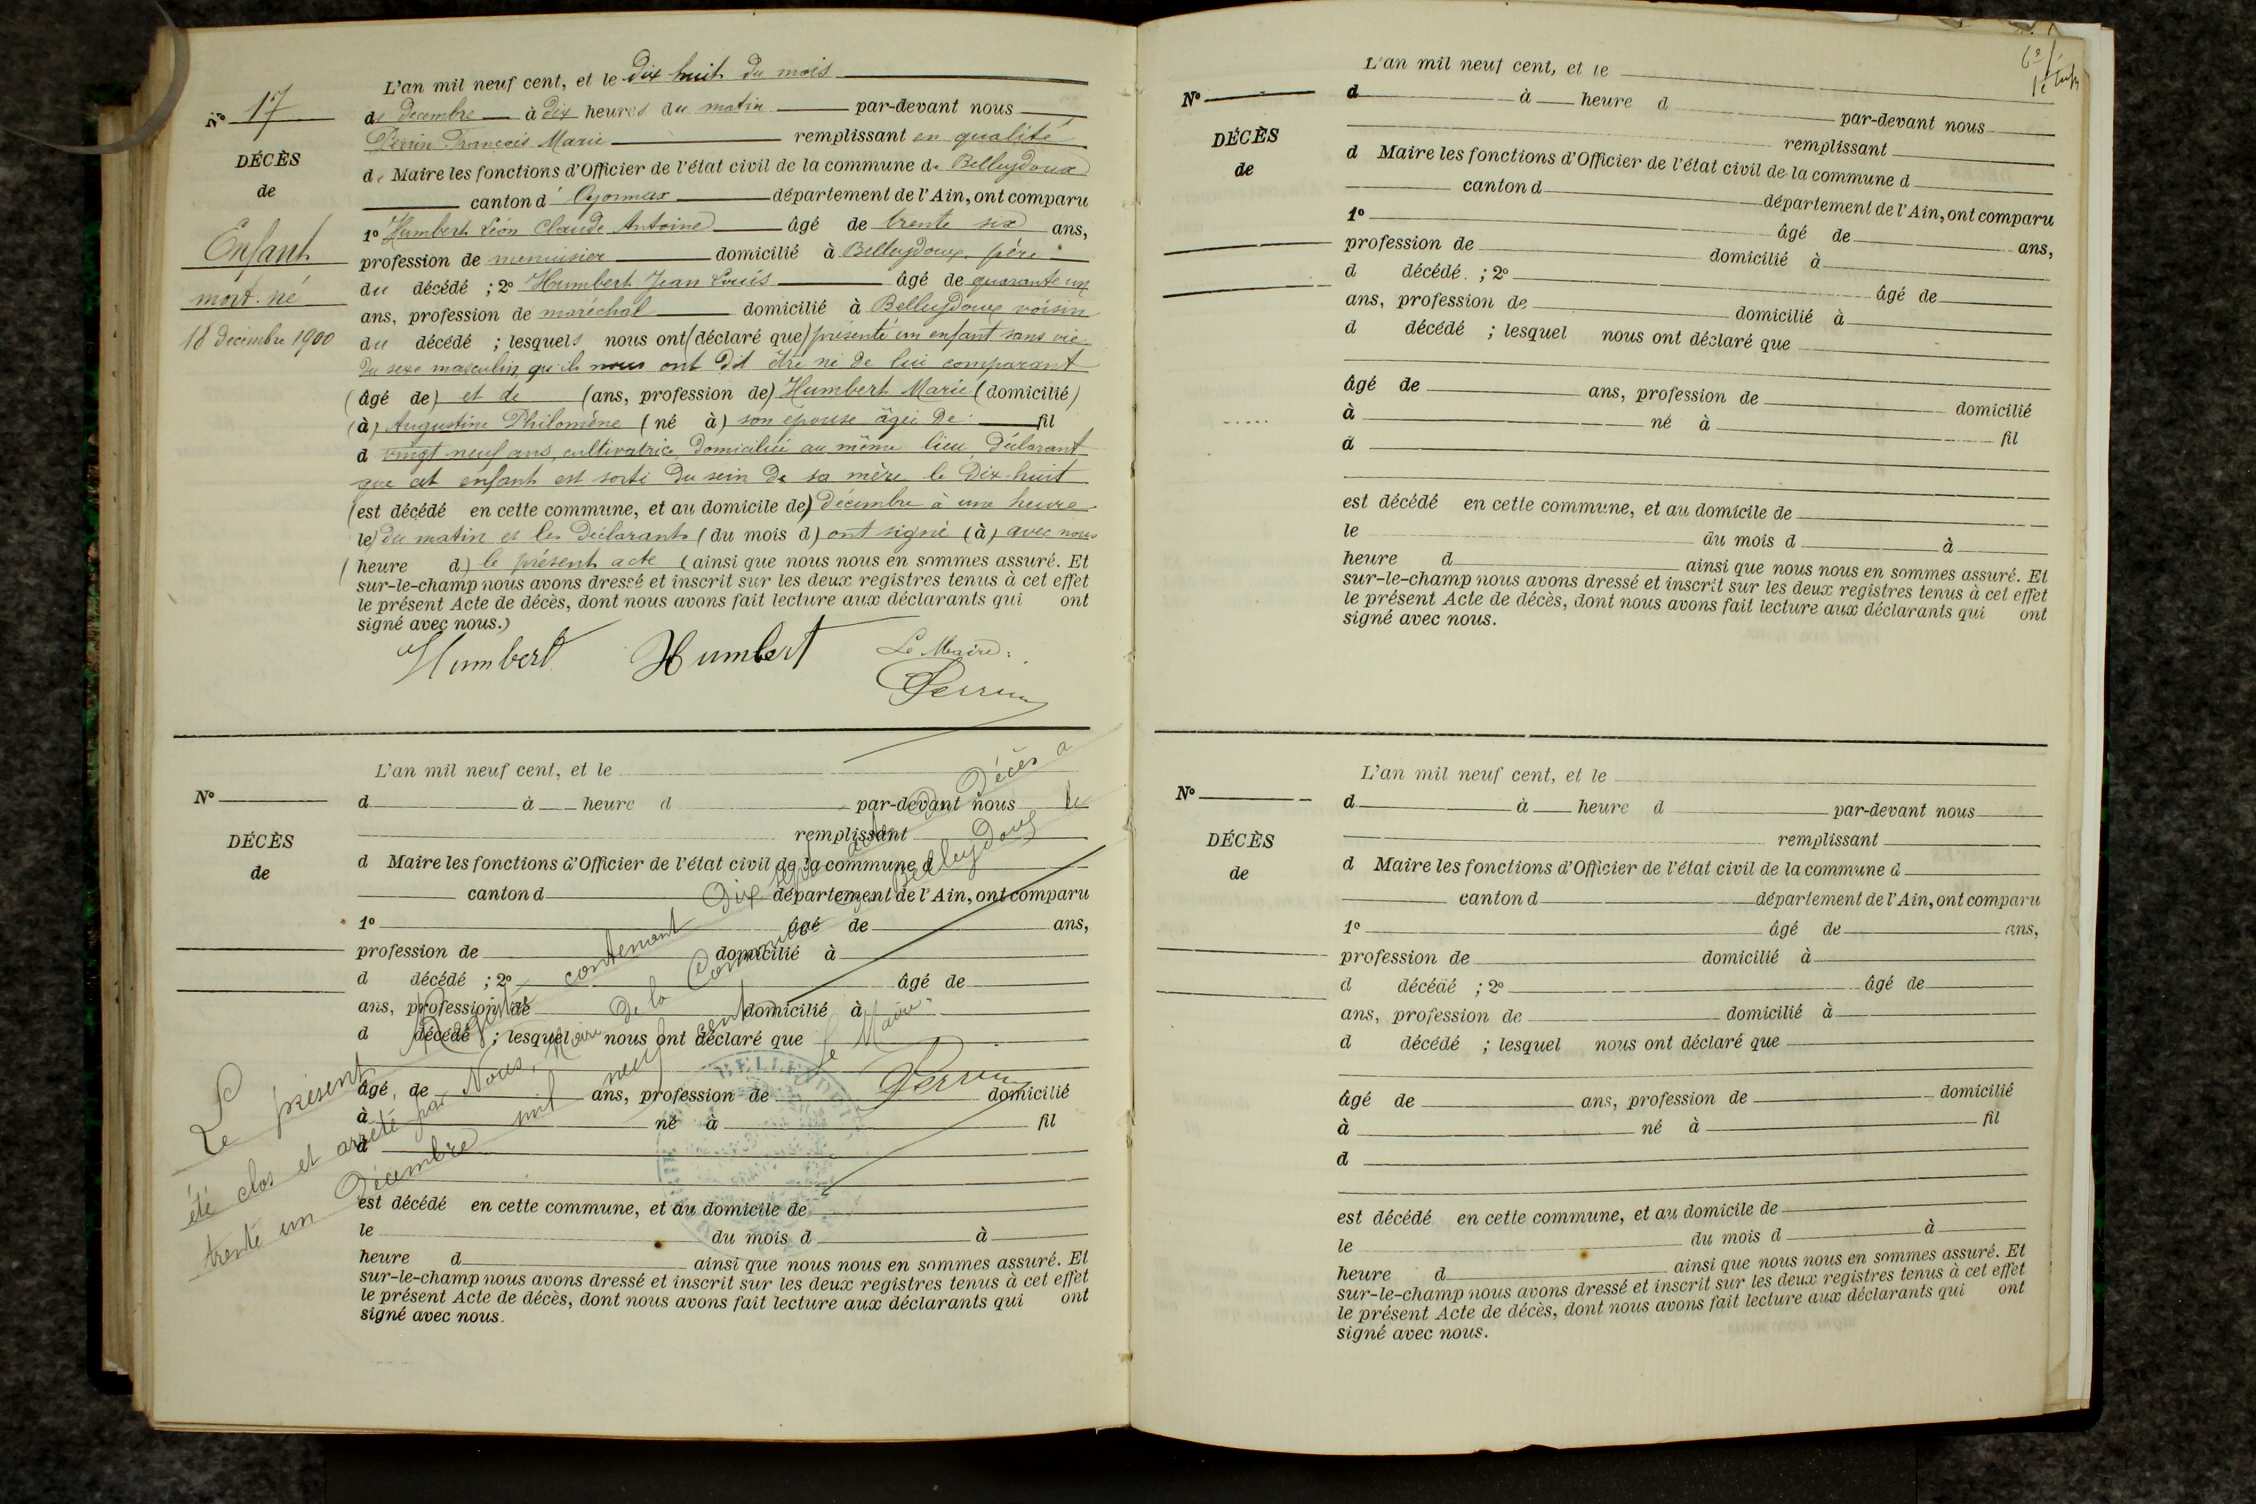 L'an mil neuf cent, et le dix huit du mois
N° 17
de décembre à dix heures du matin par-devant nous
Perrin François Marie remplissant en qualité
DÉCÈS
de Maire les fonctions d'Officier de l'état civil de la commune de Belleydoux
de
canton d'Oyonnax département de l'Ain, ont comparu
1° Humbert Léon Claude Antoine âgé de trente six ans,
Enfant
profession de menuisier domicilié à Belleydoux père
mort-né
du décédé ; 2° Humbert Jean Louis âgé de quarante un
ans, profession de maréchal domicilié à Belleydoux voisin
18 décembre 1900
du décédé ; lesquels nous ont (déclaré que) présenté un enfant sans vie
du sexe masculin qu'ils nous ont dit être né de lui comparant
(âgé de) et de (ans, profession de) Humbert Marie (domicilié)
(à) Augustine Philomène (né à) son épouse âgée de fil
d vingt neuf ans, cultivatrice, domiciliée au même lieu, déclarant
que cet enfant est sorti du sein de sa mère le dix-huit
(est décédé en cette commune, et au domicile de) décembre à une heure
le) du matin et les déclarants (du mois d) ont signé (à) avec nous
(heure d) le présent acte (ainsi que nous nous en sommes assuré. Et
sur-le-champ nous avons dressé et inscrit sur les deux registres tenus à cet effet
le présent Acte de décès, dont nous avons fait lecture aux déclarants qui ont
signé avec nous.)
Humbert Humbert Le Maire :
Perrin
L'an mil neuf cent, et le
N°
d à heure d par-devant nous
remplissant
DÉCÈS
d Maire les fonctions d'Officier de l'état civil de la commune d
de
canton d département de l'Ain, ont comparu
1° âgé de ans,
profession de domicilié à
d décédé ; 2° âgé de
ans, profession de domicilié à
d décédé ; lesquel nous ont déclaré que
âgé de ans, profession de domicilié
à né à fil
d
est décédé en cette commune, et au domicile de
le du mois d à
heure d ainsi que nous nous en sommes assuré. Et
sur-le-champ nous avons dressé et inscrit sur les deux registres tenus à cet effet
le présent Acte de décès, dont nous avons fait lecture aux déclarants qui ont
signé avec nous.
Le présent Registre contenant dix sept actes de Décès a
été clos et arrêté par Nous, Maire de la Commune de Belleydoux le
trente un décembre mil neuf cent
Le Maire
Perrin
L'an mil neuf cent, et le
N°
d à heure d
par-devant nous
DÉCÈS
remplissant
d Maire les fonctions d'Officier de l'état civil de la commune d
de
canton d département de l'Ain, ont comparu
1° âgé de ans,
profession de domicilié à
d décédé ; 2° âgé de
ans, profession de domicilié à
d décédé ; lesquel nous ont déclaré que
âgé de ans, profession de domicilié
à né à fil
d
est décédé en cette commune, et au domicile de
le du mois d à
heure d ainsi que nous nous en sommes assuré. Et
sur-le-champ nous avons dressé et inscrit sur les deux registres tenus à cet effet
le présent Acte de décès, dont nous avons fait lecture aux déclarants qui ont
signé avec nous.
L'an mil neuf cent, et le
N°
d à heure d par-devant nous
remplissant
DÉCÈS
d Maire les fonctions d'Officier de l'état civil de la commune d
de
canton d département de l'Ain, ont comparu
1° âgé de ans,
profession de domicilié à
d décédé ; 2° âgé de
ans, profession de domicilié à
d décédé ; lesquel nous ont déclaré que
âgé de ans, profession de domicilié
à né à fil
d
est décédé en cette commune, et au domicile de
le du mois d à
heure d ainsi que nous nous en sommes assuré. Et
sur-le-champ nous avons dressé et inscrit sur les deux registres tenus à cet effet
le présent Acte de décès, dont nous avons fait lecture aux déclarants qui ont
signé avec nous.